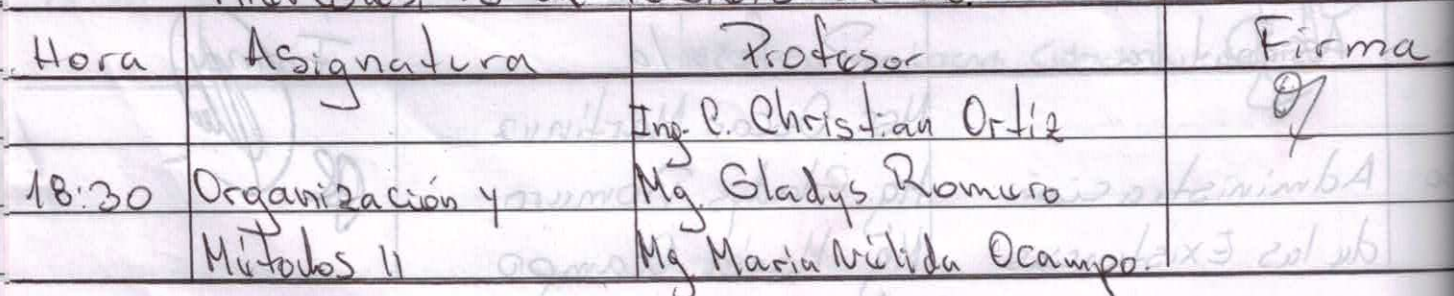 Hora Asignatura Profesor Firma
Ing. C. Christian Ortiz
18:30 Organización y Mg. Gladys Romero
Métodos II Mg Maria Nélida Ocampo.